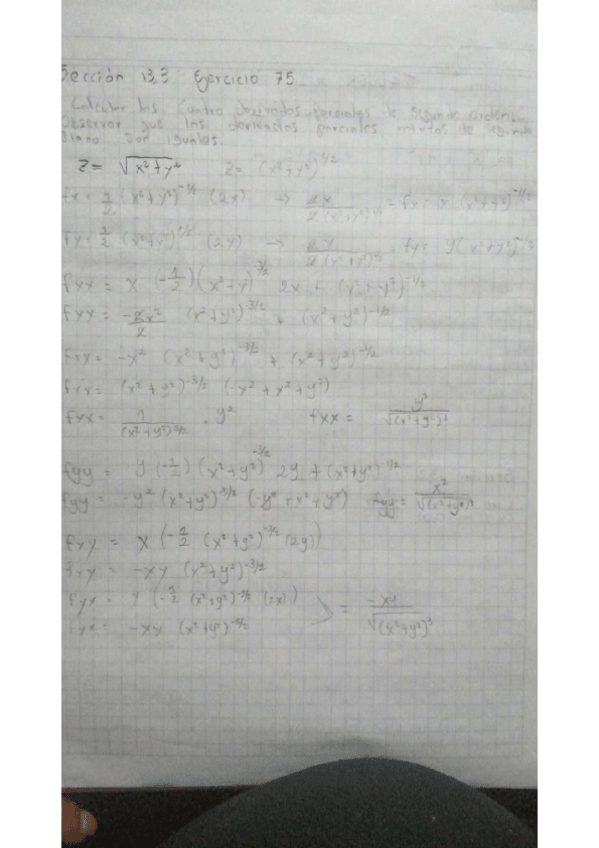 Sección 13,3 Ejercicio 75
Calcular las cuatro derivadas parciales de segundo orden
Observar que las derivadas parciales mixtas de segundo
son iguales.
z = √(x²+y²) z = (x²+y²)^1/2
fx = 1/2 (x²+y²)^-1/2 (2x) → 2x / 2(x²+y²)^1/2 = fx = x (x²+y²)^-1/2
fy = 1/2 (x²+y²)^-1/2 (2y) → 2y / 2(x²+y²)^1/2 fy = y(x²+y²)^-1/2
fxx = x (-1/2)(x²+y²)^-3/2 2x + (x²+y²)^-1/2
fxx = -2x²/2 (x²+y²)^-3/2 + (x²+y²)^-1/2
fxx = -x² (x²+y²)^-3/2 + (x²+y²)^-1/2
fxx = (x²+y²)^-3/2 (-x²+x²+y²)
fxx = 1/(x²+y²)^3/2 . y² fxx = y²/√(x²+y²)³
fyy = y (-1/2) (x²+y²)^-3/2 2y + (x²+y²)^-1/2
fyy = -y² (x²+y²)^-3/2 (-y²+x²+y²) fyy = x²/√(x²+y²)³
fxy = x (-1/2 (x²+y²)^-3/2 (2y))
fxy = -xy (x²+y²)^-3/2
fyx = y (-1/2 (x²+y²)^-3/2 (2x)) } = -xy/√(x²+y²)³
fyx = -xy (x²+y²)^-3/2